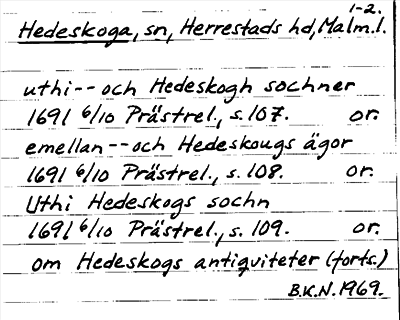 1-2.
Hedeskoga, sn, Herrestads hd, Malm.l.
uthi -- och Hedeskogh sochner
1691 6/10 Prästrel., s. 107. or.
emellan -- och Hedeskougs ägor
1691 6/10 Prästrel., s. 108. or.
Uthi Hedeskogs sochn
1691 6/10 Prästrel., s. 109. or.
om Hedeskogs antiqviteter (forts.)
B.K.N. 1969.